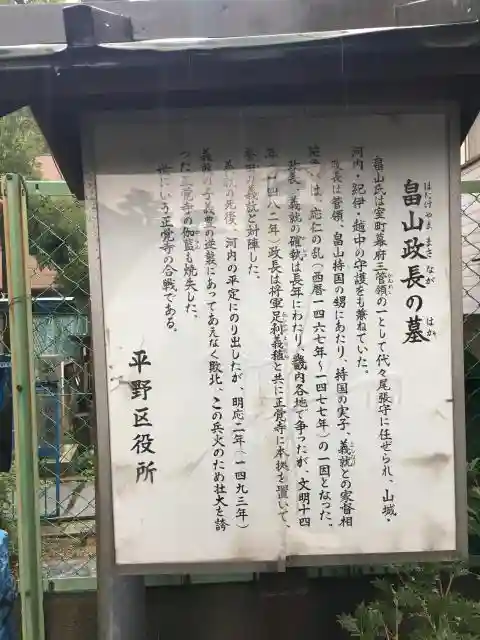 畠山政長の墓
はたけ やま まさ なが はか
畠山氏は室町幕府三管領の一として代々尾張守に任ぜられ、山城・
河内・紀伊・越中の守護をも兼ねていた。
政長は管領、畠山持国の甥にあたり、持国の実子、義就との家督相
続争いは、応仁の乱(西暦一四六七年~一四七七年)の一因となった。
政長、義就の確執は長年にわたり、畿内各地で争ったが、文明十四
年(一四八二年)政長は将軍足利義稙と共に正覚寺に本拠を置いて、
の義就と対陣した。
義就の死後、河内の平定にのり出したが、明応二年(一四九三年)
義就の子義豊の逆襲にあってあえなく敗北、この兵火のため壮大を誇
った正覚寺の伽藍も焼失した。
世にいう正覚寺の合戦である。
平野区役所